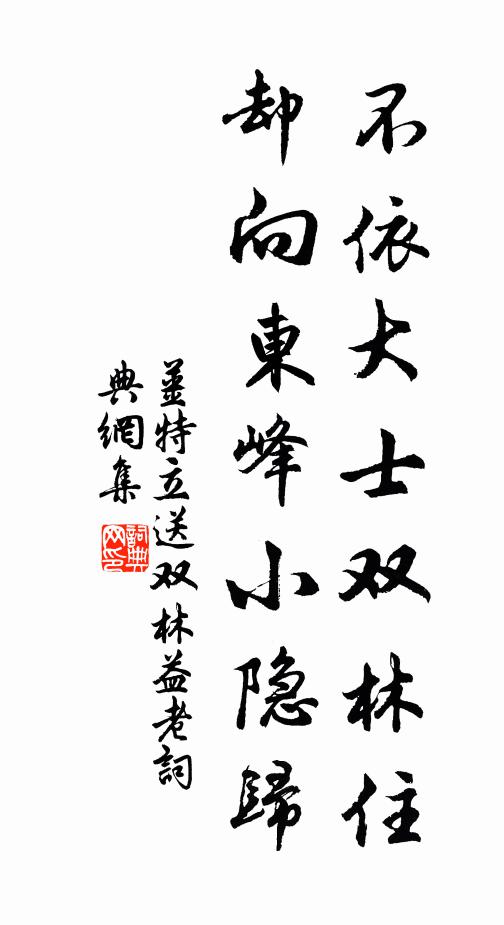 不依大士双林住
却向東峰小隐歸
姜特立送双林益老詞
典網集
詞典
网印